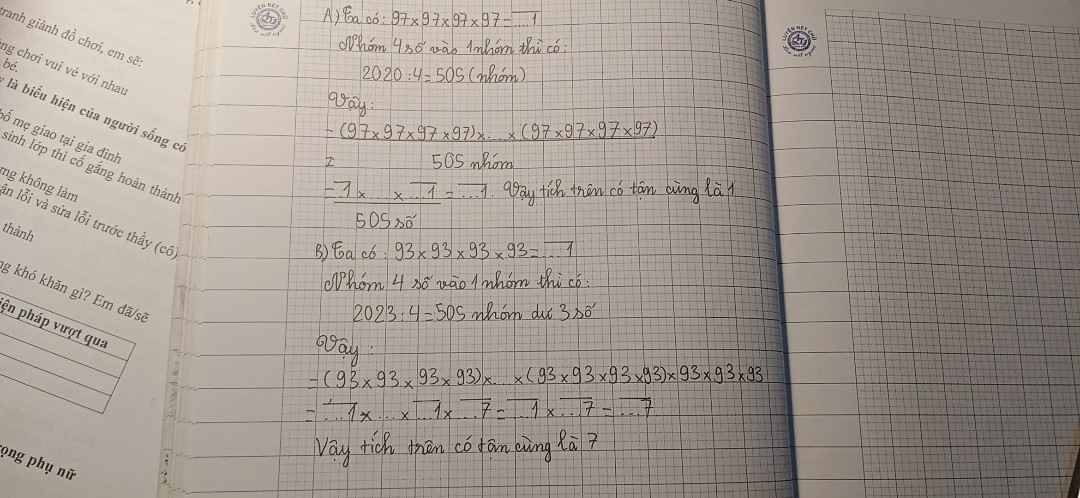 tranh giành đồ chơi, em sẽ:
ng chơi vui vẻ với nhau
bé.
là biểu hiện của người sống có
bố mẹ giao tại gia đình
sinh lớp thì cố gắng hoàn thành
mg không làm
ận lỗi và sửa lỗi trước thầy (cô)
thành
ng khó khăn gì? Em đã/sẽ
iện pháp vượt qua
rọng phụ nữ
A) Ta có: 97×97×97×97=...1
Nhóm 4 số vào 1 nhóm thì có:
2020:4=505 (nhóm)
Vậy:
=(97×97×97×97)×...×(97×97×97×97)
505 nhóm
=...1×...×...1=...1 Vậy tích trên có tận cùng là 1
505 số
B) Ta có: 93×93×93×93=...1
Nhóm 4 số vào 1 nhóm thì có:
2023:4=505 nhóm dư 3 số
Vậy:
=(93×93×93×93)×...×(93×93×93×93)×93×93×93
=...1×...×...1×...7=...1×...7=...7
Vậy tích trên có tận cùng là 7
LUYỆN NÉT CHỮ